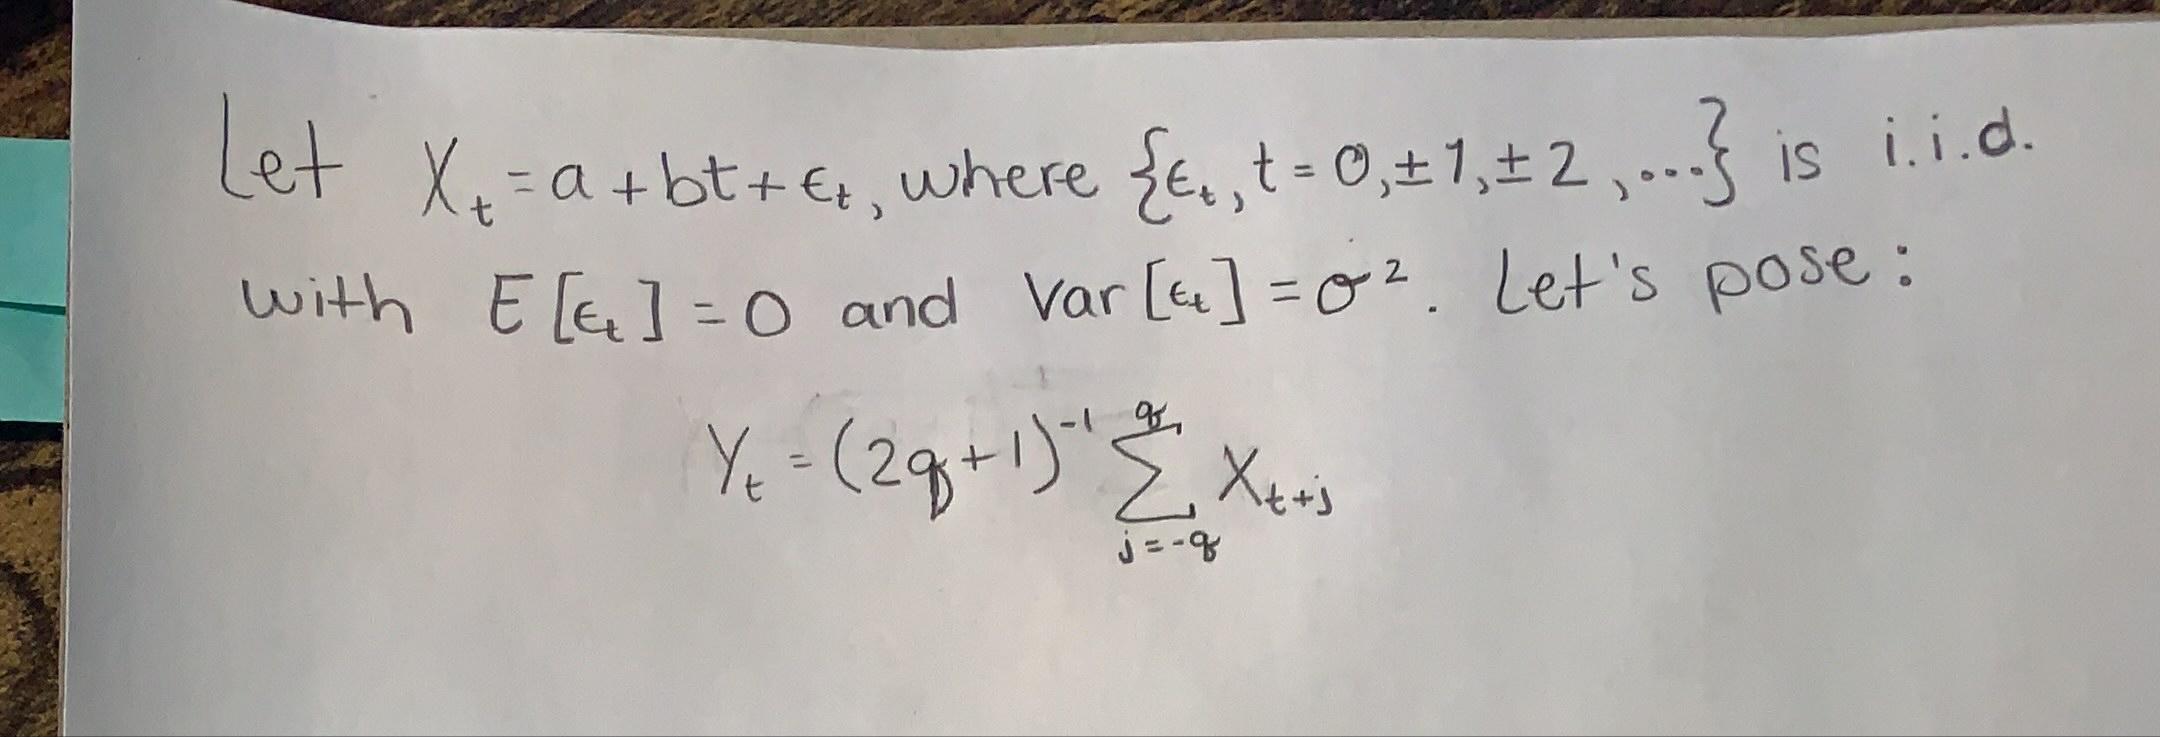 Let X_t = a + bt + ϵ_t, where {ϵ_t, t = 0, ±1, ±2, ...} is i.i.d.
with E[ϵ_t] = 0 and Var[ϵ_t] = σ². Let's pose:
Y_t = (2q+1)^{-1} ∑_{j=-q}^{q} X_{t+j}